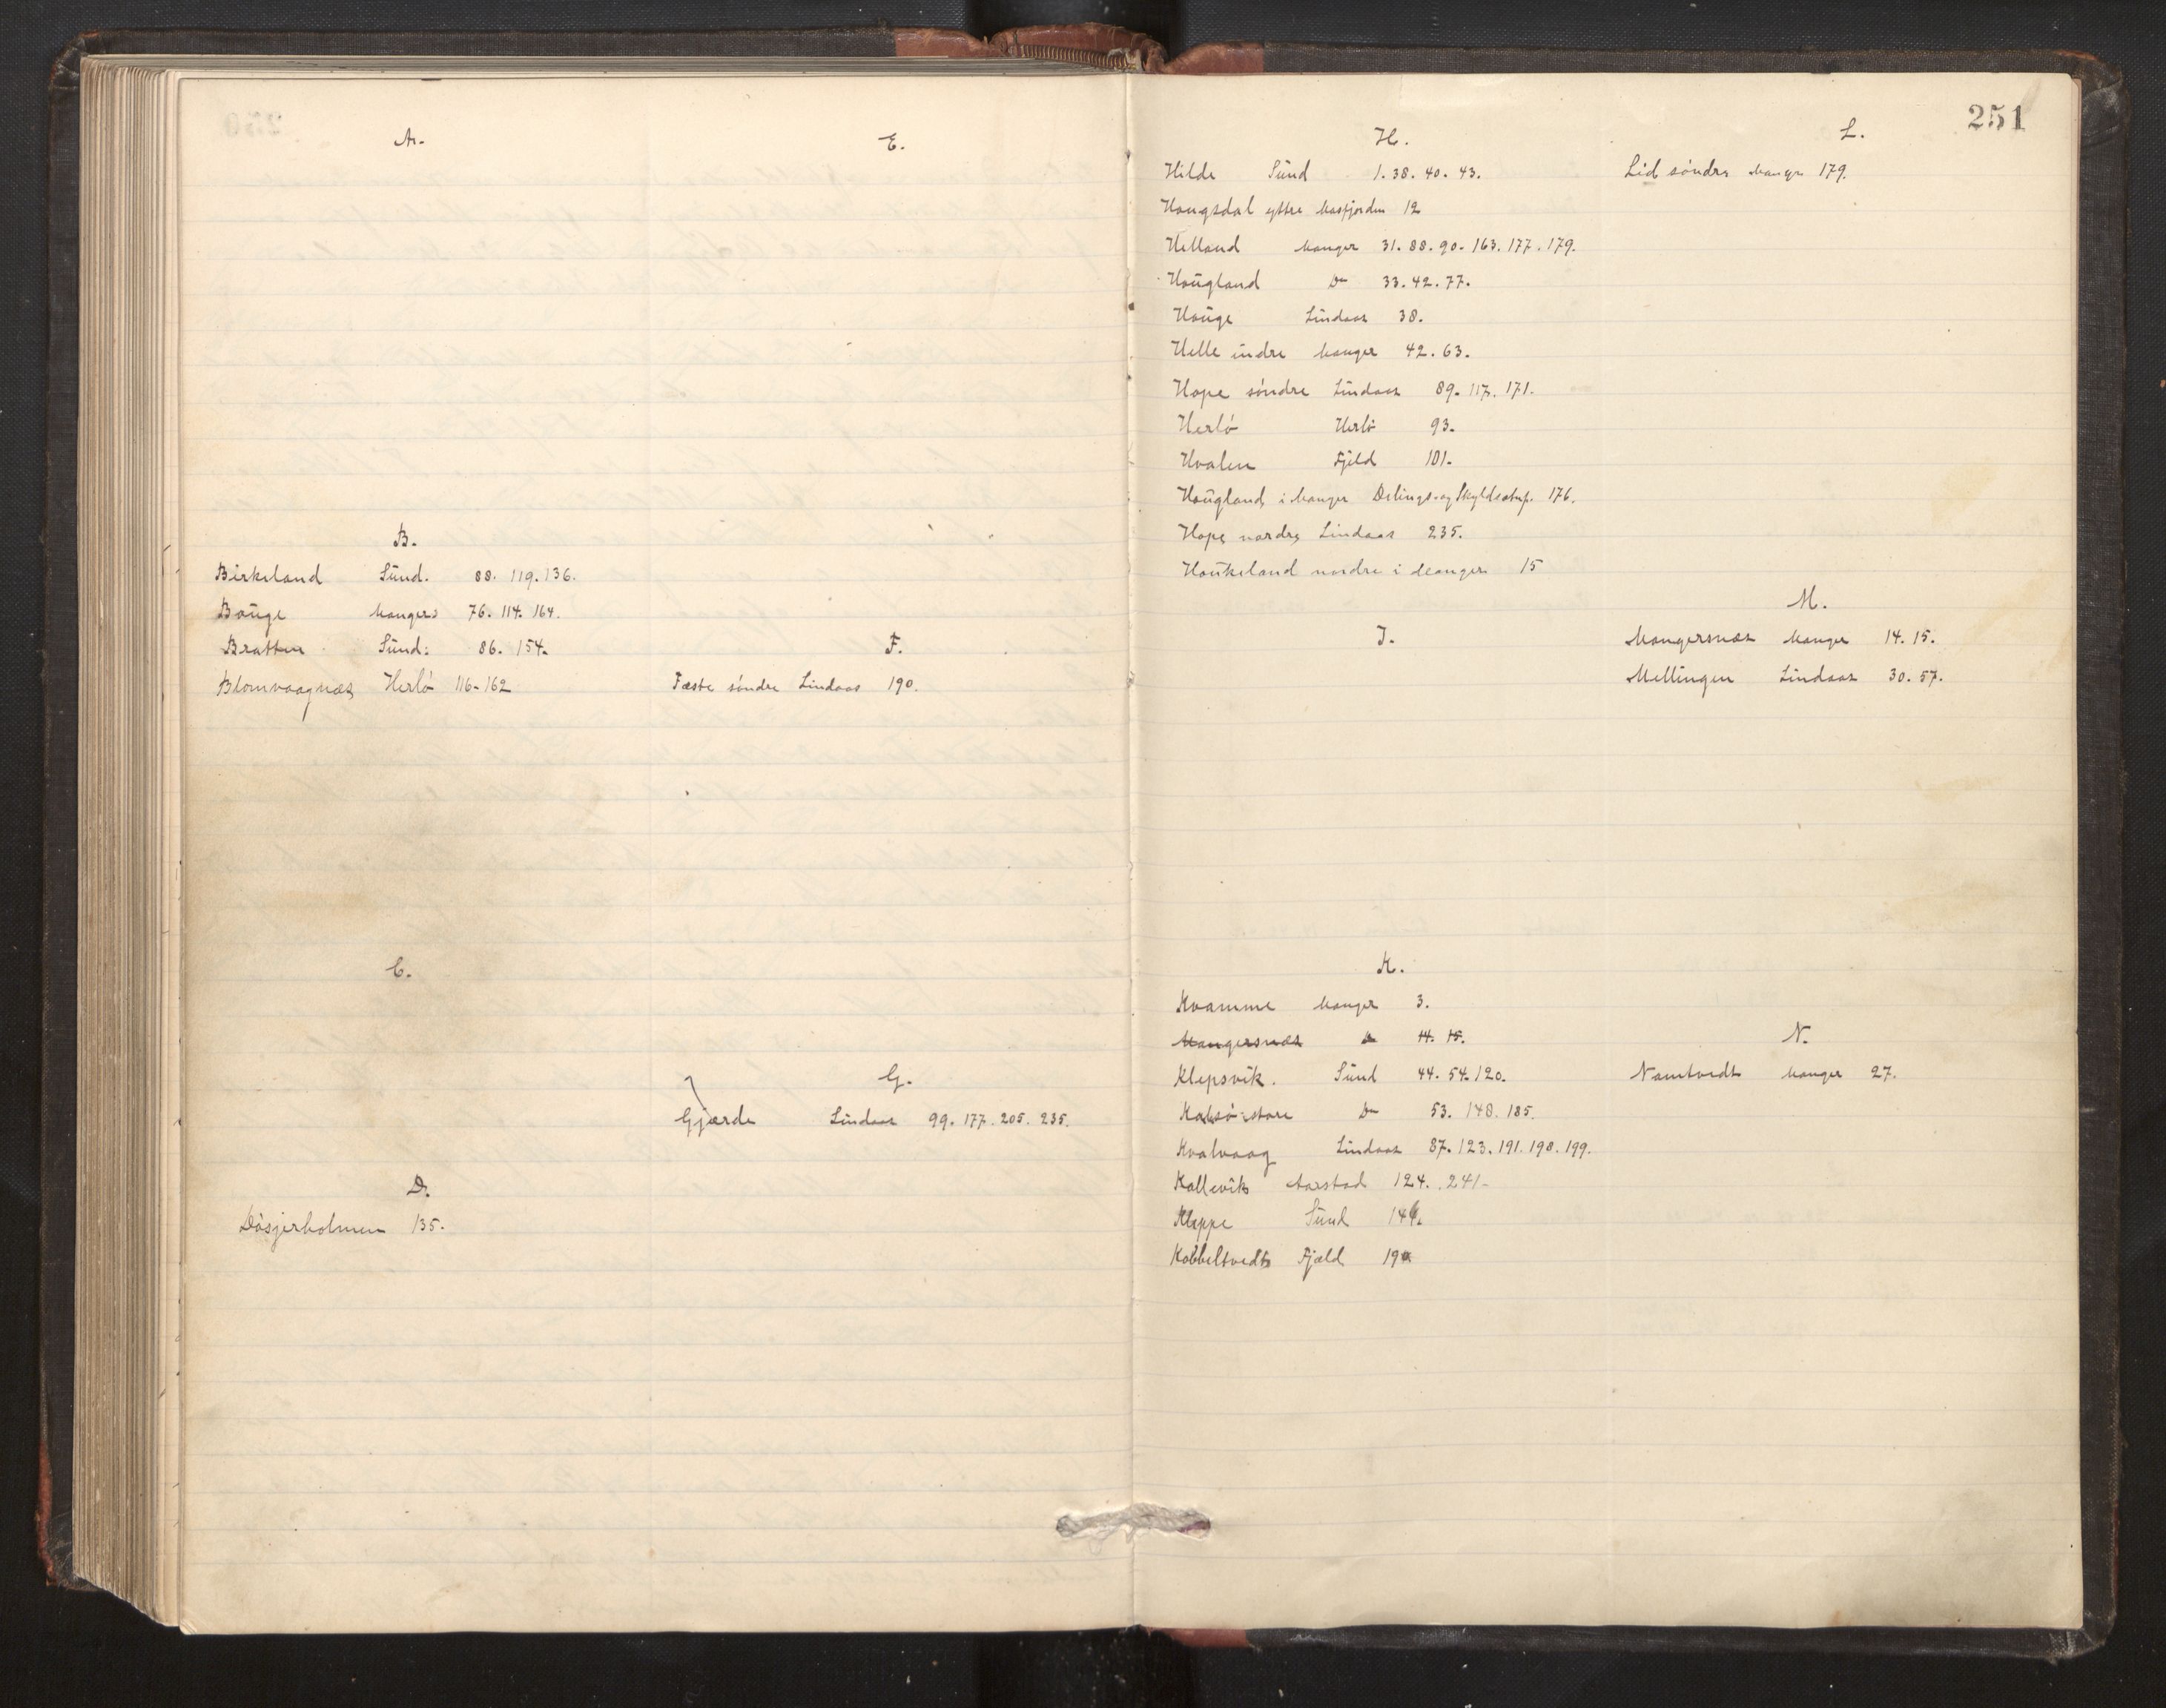 A.
B.
Birkeland Sund. 88. 119. 136.
Bauge Manger 76. 114. 164.
Bratten Sund. 86. 154.
Blomvaagnæs Herlö 116-162
C.
D.
Dösjerholmen 135.
E.
F.
Fæste söndre Lindaas 190.
G.
Gjærde Lindaas 99. 177. 205. 235.
251
H.
Hilde Sund 1. 38. 40. 43.
Hougsdal yttre Masfjorden 12
Helland Manger 31. 88. 90. 163. 177. 179.
Haugland Do 33. 42. 77.
Hauge Lindaas 38.
Helle indre Manger 42. 63.
Hope söndre Lindaas 89. 117. 171.
Herlö Herlö 93.
Hvalen Fjeld 101.
Haugland i Manger Delings- og Skyldsætnf. 176.
Hope nordre Lindaas 235.
Haukeland nordre i Manger 15
J.
K.
Kvamme Manger 3.
Mangersnæs Do 14. 15.
Klepsvik. Sund 44. 54. 120.
Kalsö store Do 53. 148. 185.
Kvalvaag Lindaas 87. 123. 191. 198. 199.
Kallevik Aarstad 124. 241-
Kleppe Sund
Kobbeltvedt Fjæld
L.
Lid söndre Manger 179.
M.
Mangersnæs Manger 14. 15.
Mellingen Lindaas 30. 57.
N.
Namtvedt Manger 27.